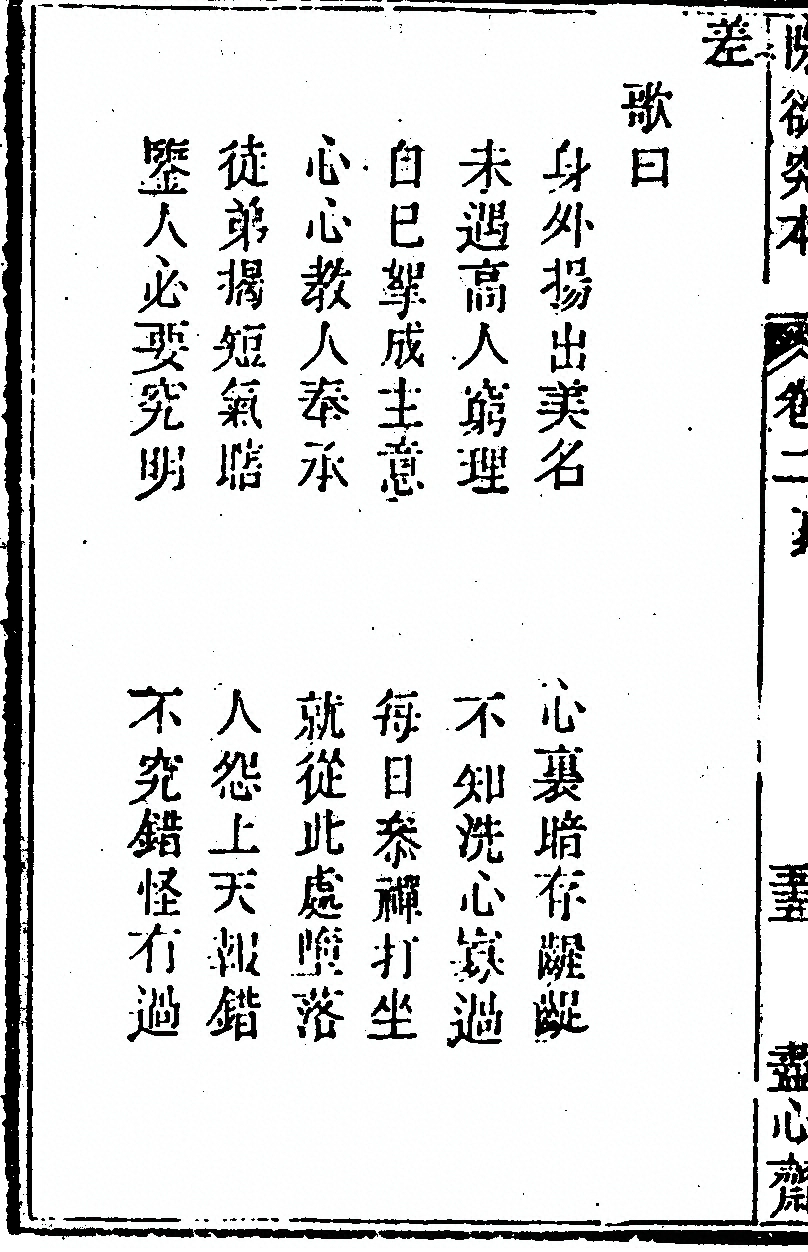 欲究本 卷二 盡心齋
差
歌曰
身外揚出美名 心裏暗存齷齪
未遇高人窮理 不知洗心寡過
自已拏成主意 每日叅禪打坐
心心教人奉承 就從此處墮落
徒弟揭短氣瞎 人怨上天報錯
鑒人必要究明 不究錯怪有過